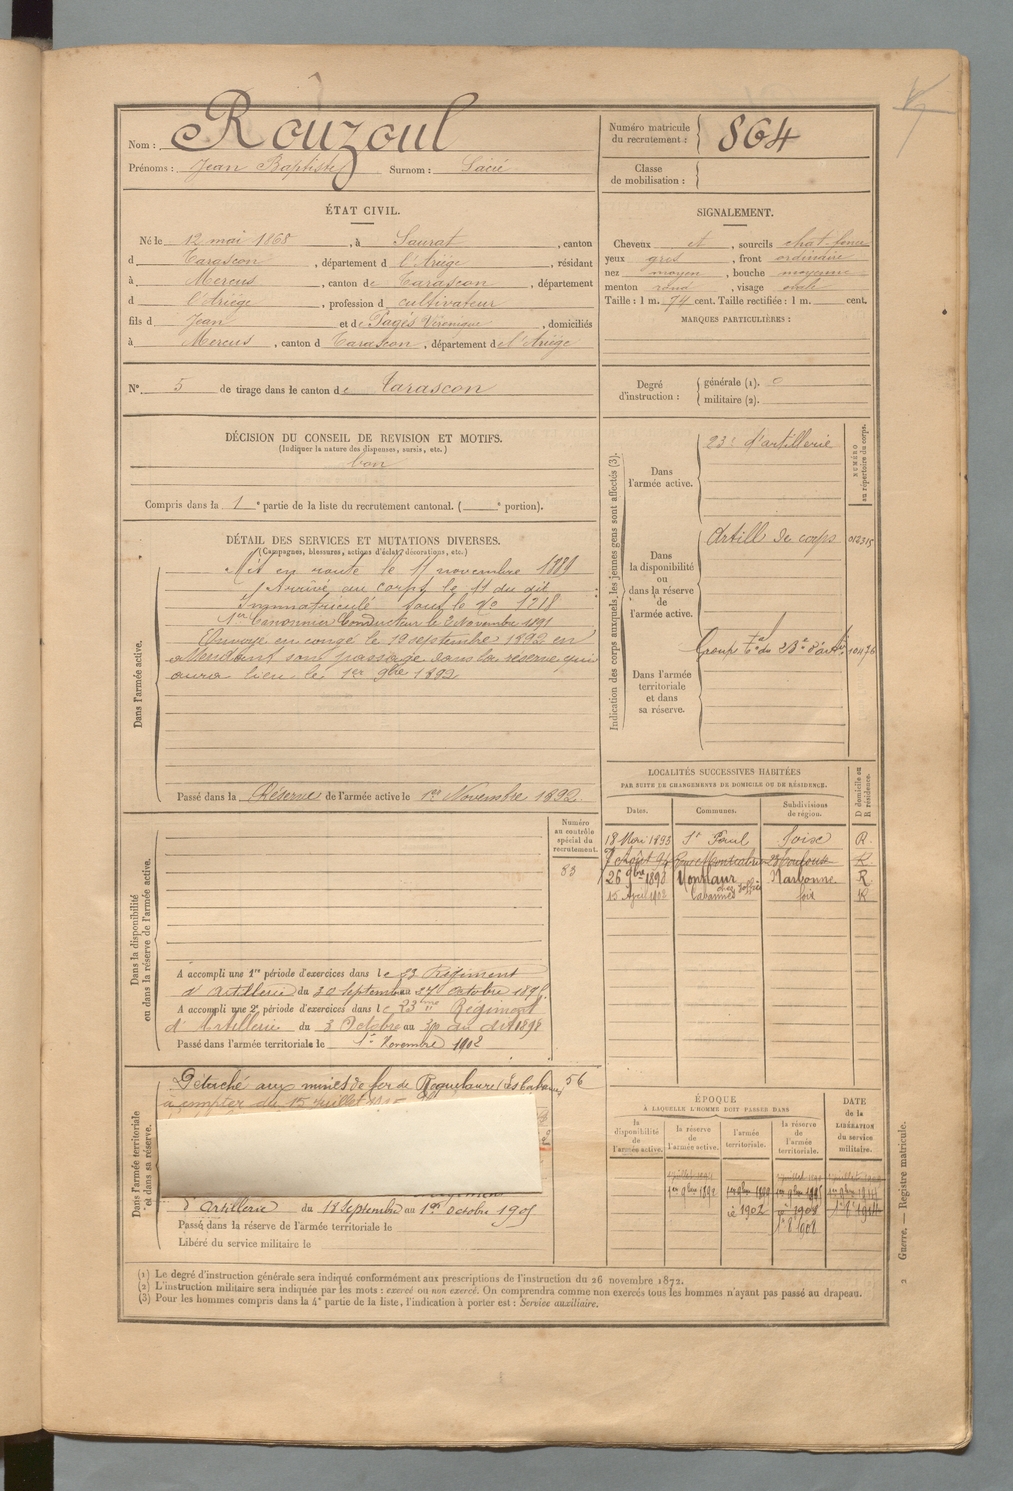 Nom : Rouzoul
Prénoms : Jean Baptiste Surnom :
Numéro matricule du recrutement : 864
Classe de mobilisation :
ÉTAT CIVIL.
Né le 12 mai 1868, à Saurat, canton
d Tarascon, département d l'Ariège, résidant
à Mercus, canton de Tarascon, département
d l'Ariège, profession d cultivateur
fils d Jean et de Pagès Véronique, domiciliés
à Mercus, canton d Tarascon, département de l'Ariège
N° 5 de tirage dans le canton de Tarascon
SIGNALEMENT.
Cheveux et, sourcils chat. foncé
yeux gros, front ordinaire
nez moyen, bouche moyenne
menton rond, visage ovale
Taille : 1 m. 74 cent. Taille rectifiée : 1 m. cent.
MARQUES PARTICULIÈRES :
Degré d'instruction : générale (1).
militaire (2).
DÉCISION DU CONSEIL DE REVISION ET MOTIFS.
(Indiquer la nature des dispenses, sursis, etc.)
bon
Compris dans la 1e partie de la liste du recrutement cantonal. ( e portion).
DÉTAIL DES SERVICES ET MUTATIONS DIVERSES.
(Campagnes, blessures, actions d'éclat, décorations, etc.)
Dans l'armée active.
Mis en route le 11 novembre 1889
Arrivé au corps le 11 du dit
Immatriculé sous le No 1218
1er Canonnier Conducteur le 2 Novembre 1891
Envoyé en congé le 19 septembre 1892 en
attendant son passage dans la réserve qui
aura lieu le 1er 9bre 1892
Passé dans la Réserve de l'armée active le 1er Novembre 1892.
Indication des corps auxquels les jeunes gens sont affectés (3).
NUMÉRO au répertoire du corps.
Dans l'armée active.
23e d'artillerie
Dans la disponibilité ou dans la réserve de l'armée active.
Artillie de corps 012315
Dans l'armée territoriale et dans sa réserve.
Groupe Tal du 23e d'artie
LOCALITÉS SUCCESSIVES HABITÉES
PAR SUITE DE CHANGEMENTS DE DOMICILE OU DE RÉSIDENCE.
Dates. Communes. Subdivisions de région. D domicile ou R résidence.
18 Mai 1893 St Paul Foix R.
7 Août 94 Toulouse R.
26 9bre 1898 Narbonne R
15 Avril 1902 Cabannes foix R
Dans la disponibilité ou dans la réserve de l'armée active.
Numéro au contrôle spécial du recrutement.
83
A accompli une 1re période d'exercices dans le 23 Régiment
d'Artillerie du 30 septembre au 27 octobre 1895.
A accompli une 2e période d'exercices dans le 23ème Régiment
d'Artillerie du 3 Octobre au 30 du dit 1898
Passé dans l'armée territoriale le 1er Novembre 1902
Dans l'armée territoriale et dans sa réserve.
Détaché aux mines de fer de Roquelaure 56
à compter du 15 Juillet
d'Artillerie du 18 septembre au 1er octobre 1905
Passé dans la réserve de l'armée territoriale le
Libéré du service militaire le
ÉPOQUE
À LAQUELLE L'HOMME DOIT PASSER DANS
la disponibilité de l'armée active.
la réserve de l'armée active.
l'armée territoriale.
la réserve de l'armée territoriale.
DATE de la LIBÉRATION du service militaire.
1er 9bre 1892
1902
1908
(1) Le degré d'instruction générale sera indiqué conformément aux prescriptions de l'instruction du 26 novembre 1872.
(2) L'instruction militaire sera indiquée par les mots : exercé ou non exercé. On comprendra comme non exercés tous les hommes n'ayant pas passé au drapeau.
(3) Pour les hommes compris dans la 4e partie de la liste, l'indication à porter est : Service auxiliaire.
2 Guerre. — Registre matricule.